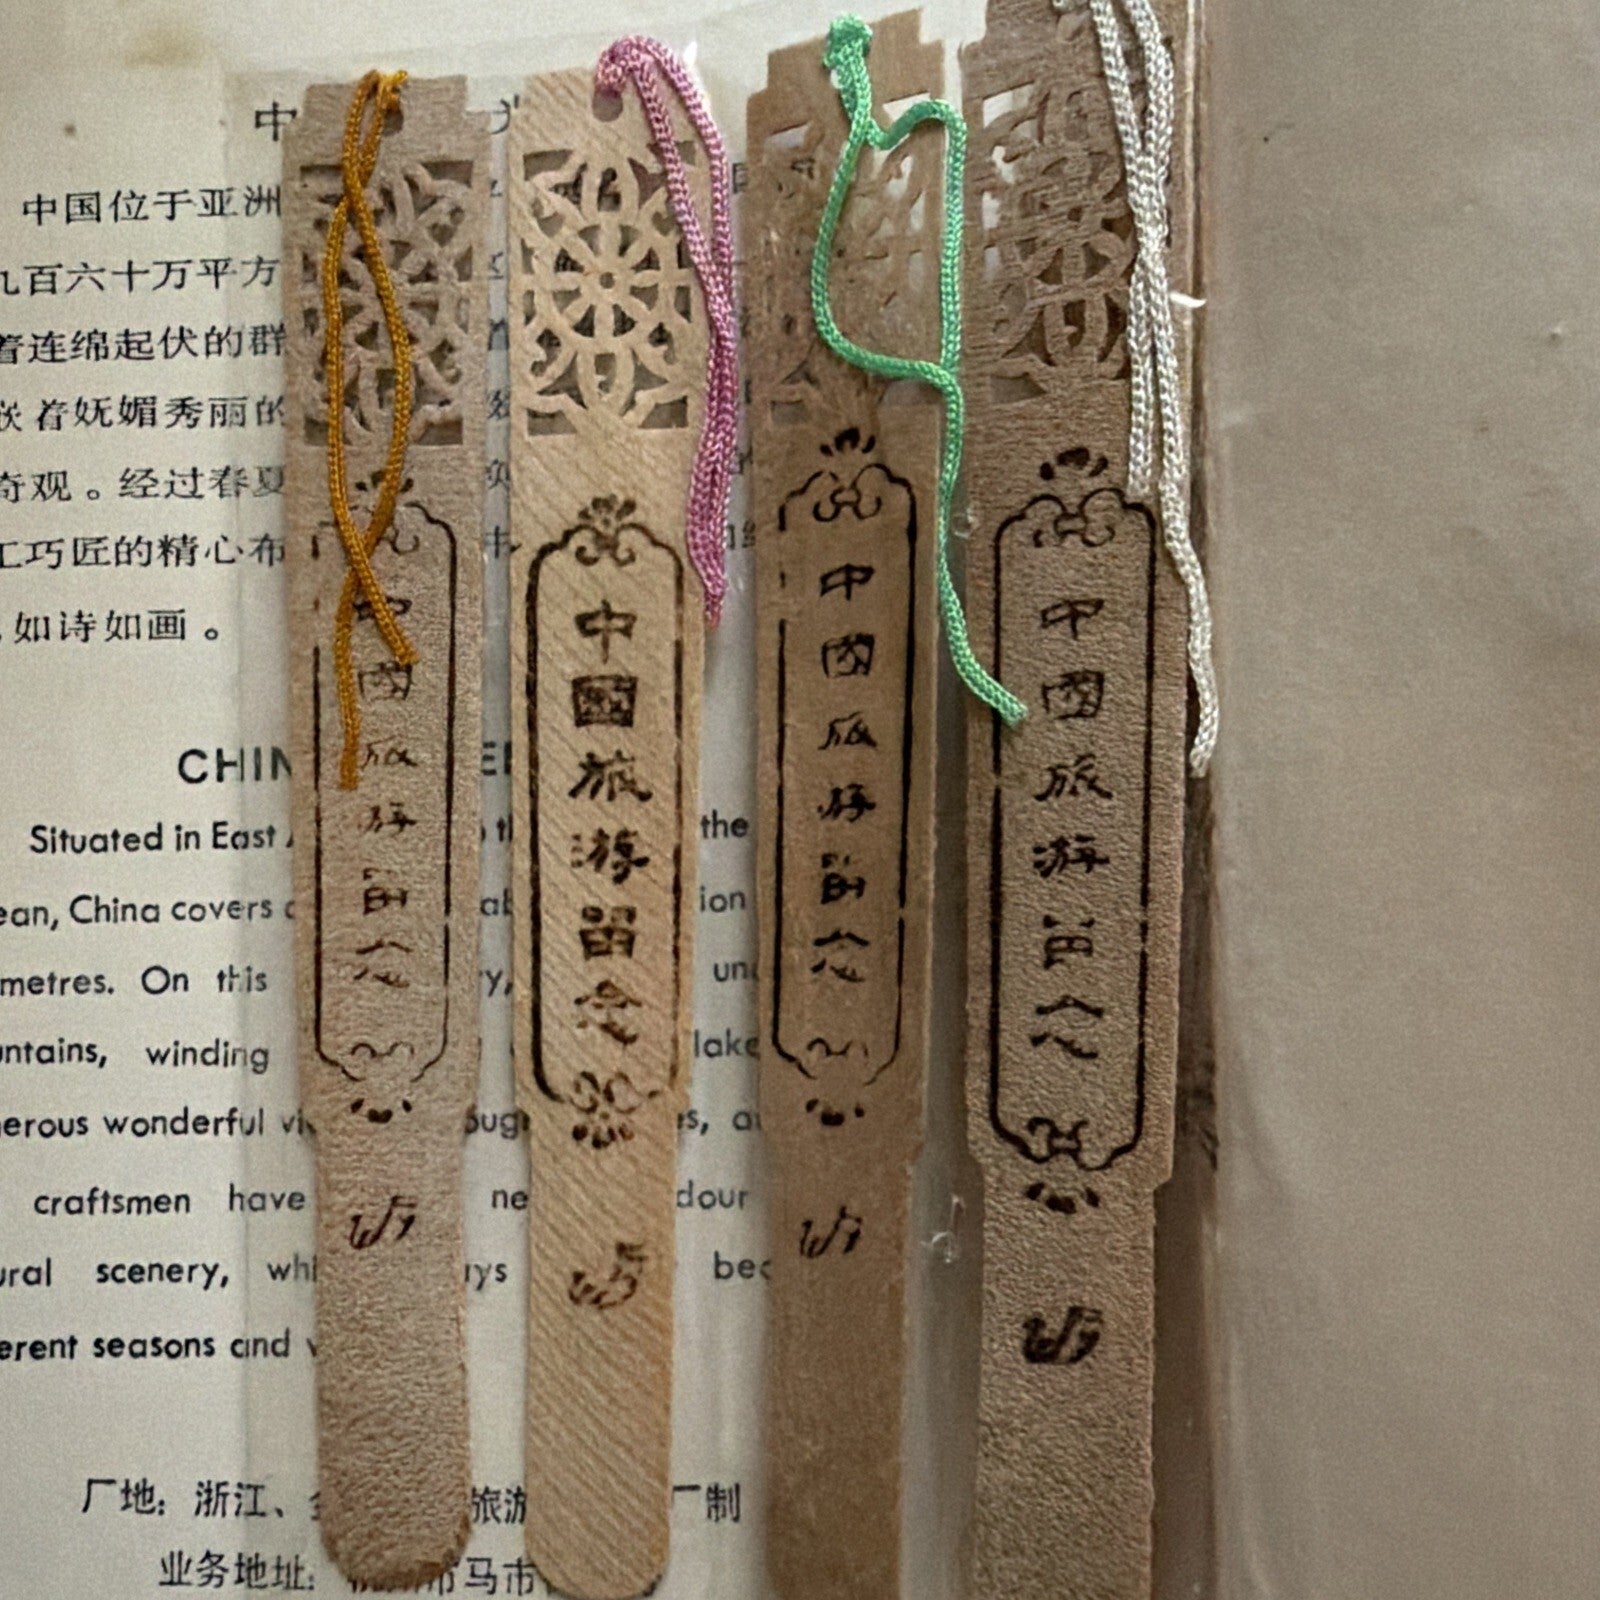 中
中国位于亚洲
九百六十万平方
着连绵起伏的群
嵌着妩媚秀丽的
奇观。经过春夏
工巧匠的精心布
如诗如画。
CHIN
Situated in East
ean, China covers
metres. On this
untains, winding
lake
erous wonderful
craftsmen have
dour
ural scenery,
erent seasons and
厂地：浙江、
旅游
厂制
业务地址：
市马市
中國旅游留念
中國旅游留念
中國旅游留念
中國旅游留念